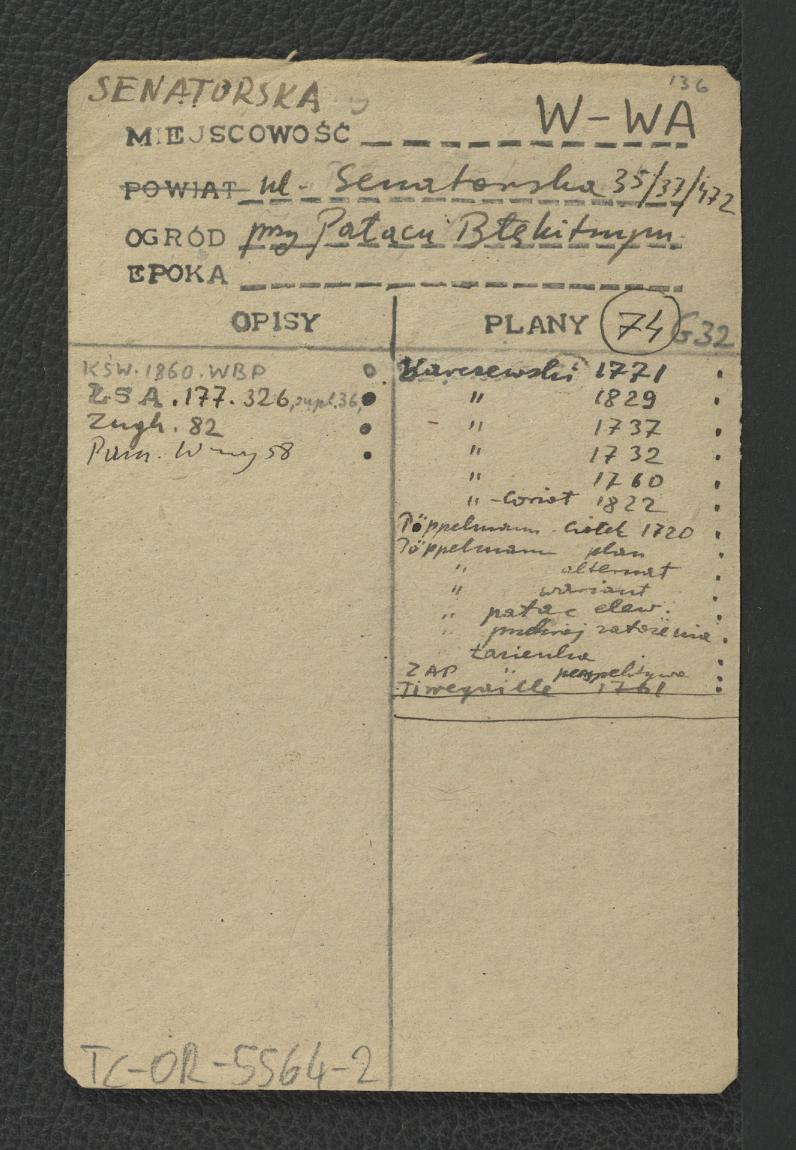 136
SENATORSKA
MIEJSCOWOŚĆ W-WA
POWIAT ul. Senatorska 35/37/472
OGRÓD przy Pałacu Błękitnym
EPOKA
OPISY
KŚW.1860.WBP
ZSA.177.326, supl.36,
Zugh. 82
Pam. W-wy 58
PLANY 74 G32
Karczewski 1771
" 1829
" 1737
" 1732
" 1760
" -Coriot 1822
Pöppelmann - 1720
Pöppelmann plan
" alternat
" wariant
" pałac elew.
" przekrój założenia
Łazienka
ZAP " perspektywa
Tirregaille 1761
TC-OR-5564-2